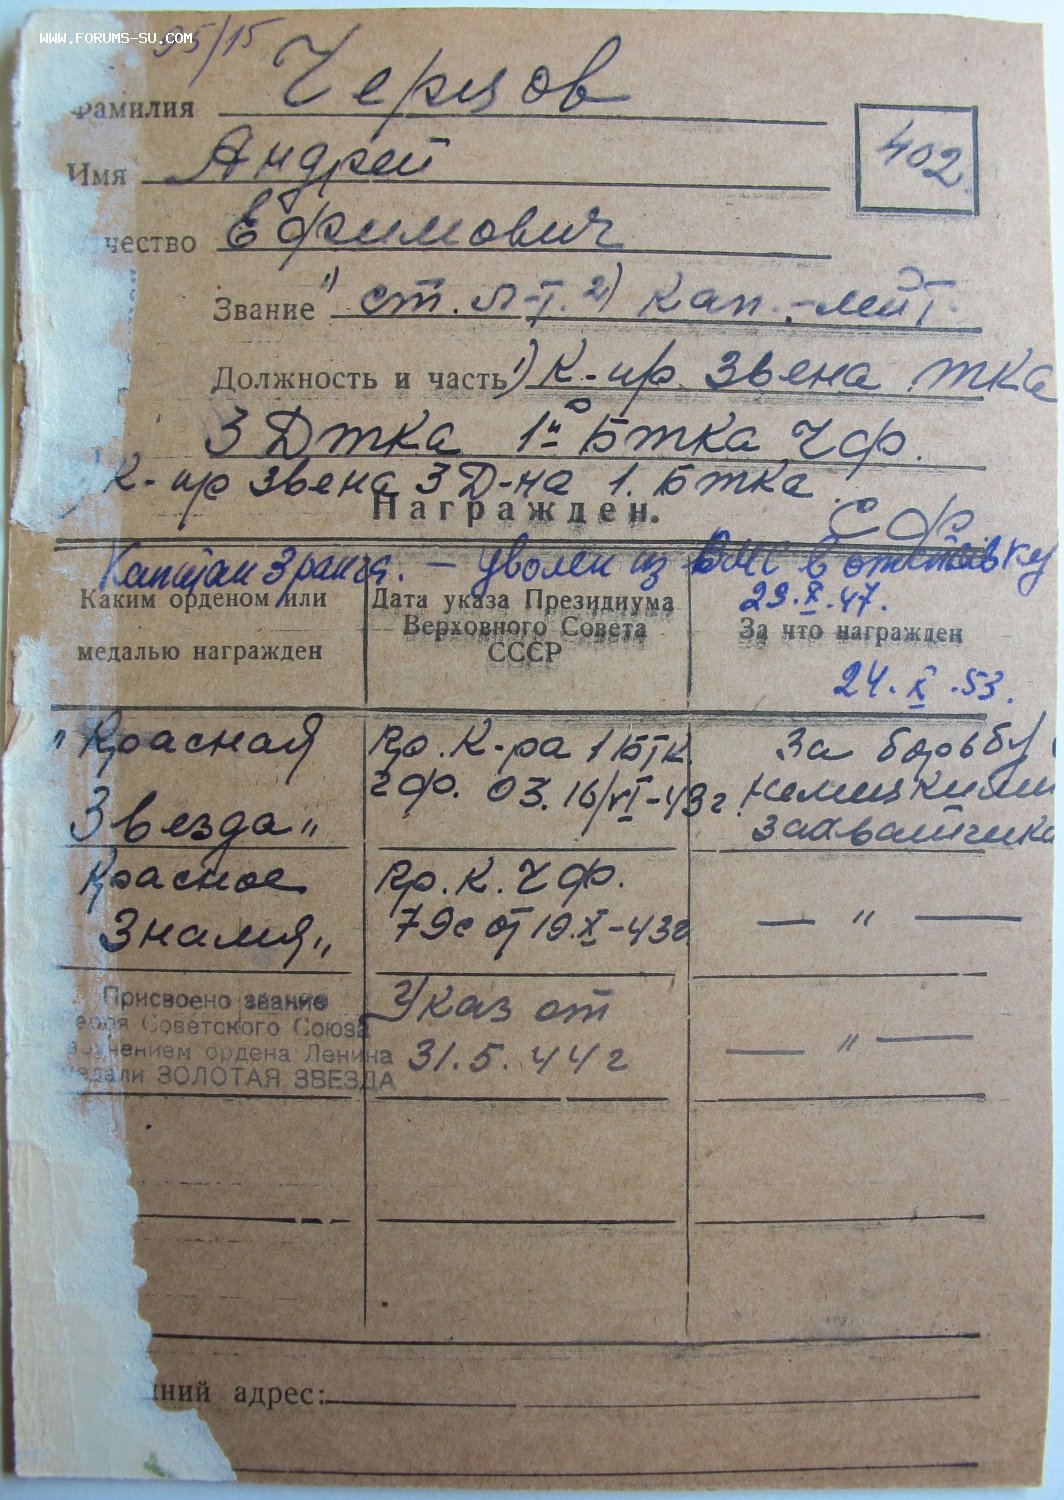 WWW.FORUMS-SU.COM
95/15
Фамилия Черцов
402
Имя Андрей
чество Ефимович
Звание 1) ст. л-т. 2) кап.-лейт.
Должность и часть 1) К-ир звена тка
3 Дтка 1й Бтка ЧФ.
К-ир звена 3 Д-на 1. Бтка.
СФ
Награжден.
Капитан 3 ранга. — Уволен из ВМС в отставку
29.X.47.
Каким орденом или медалью награжден
Дата указа Президиума Верховного Совета СССР
За что награжден
24.X.53.
"Красная Звезда"
Пр. К-ра 1 Бтк. ЧФ. 03. 16/VI-43г.
За борьбу немецкими захватчика
Красное Знамя"
Пр. К. ЧФ. 79с от 19.X-43г
— " —
Присвоено звание
ероя Советского Союза
учением ордена Ленина
едали ЗОЛОТАЯ ЗВЕЗДА
Указ от 31.5.44г
— " —
ний адрес: